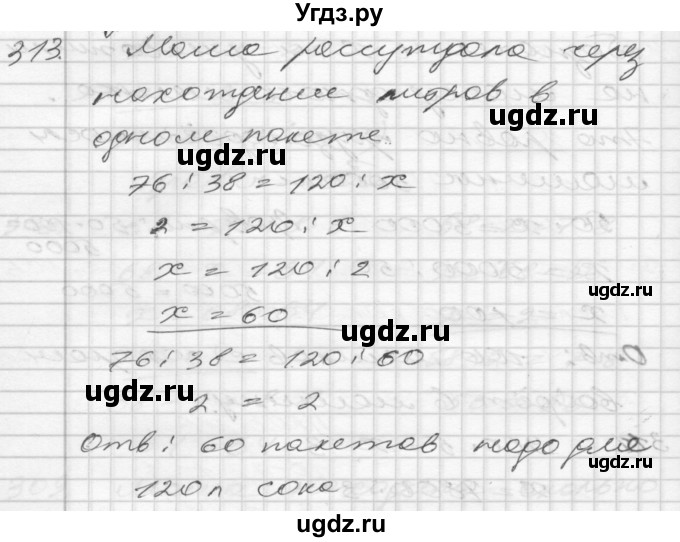 Угдз.ру
313. Маша рассуждала через
нахождение литров в
одном пакете.
ugdz.ru
ugdz.ru
76 : 38 = 120 : x
2 = 120 : x
ugdz.ru
x = 120 : 2
ugdz.ru
x = 60
ugdz.ru
76 : 38 = 120 : 60
ugdz.ru
2 = 2
ugdz.ru
Отв: 60 пакетов надо для
ugdz.ru
120 л сока
ugdz.ru
ugdz.ru